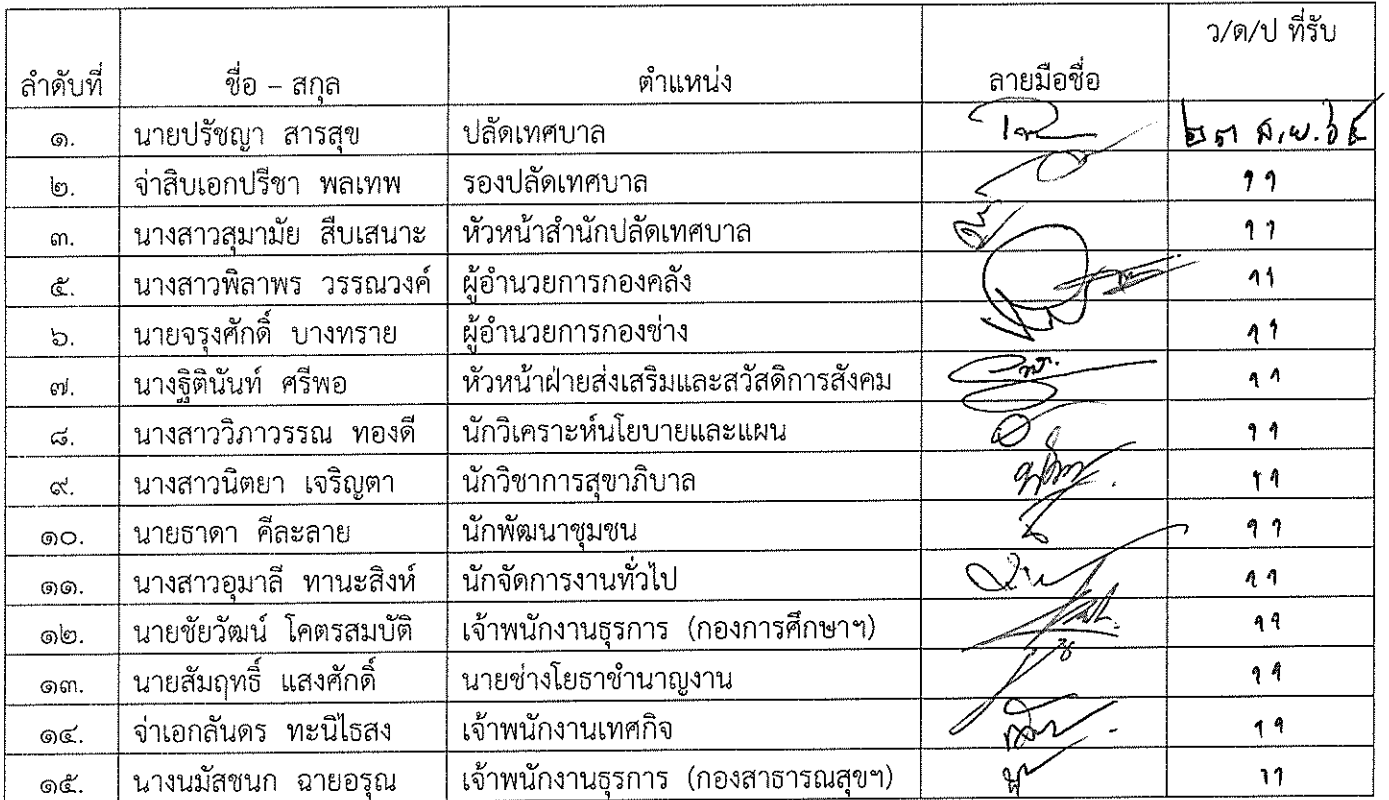 ลำดับที่ ชื่อ – สกุล ตำแหน่ง ลายมือชื่อ ว/ด/ป ที่รับ
๑. นายปรัชญา สารสุข ปลัดเทศบาล
๒. จ่าสิบเอกปรีชา พลเทพ รองปลัดเทศบาล ๆๆ
๓. นางสาวสุมามัย สืบเสนาะ หัวหน้าสำนักปลัดเทศบาล ๆๆ
๕. นางสาวพิลาพร วรรณวงค์ ผู้อำนวยการกองคลัง ๆๆ
๖. นายจรุงศักดิ์ บางทราย ผู้อำนวยการกองช่าง ๆๆ
๗. นางฐิตินันท์ ศรีพอ หัวหน้าฝ่ายส่งเสริมและสวัสดิการสังคม ๆๆ
๘. นางสาววิภาวรรณ ทองดี นักวิเคราะห์นโยบายและแผน ๆๆ
๙. นางสาวนิตยา เจริญตา นักวิชาการสุขาภิบาล ๆๆ
๑๐. นายธาดา คีละลาย นักพัฒนาชุมชน ๆๆ
๑๑. นางสาวอุมาลี ทานะสิงห์ นักจัดการงานทั่วไป ๆๆ
๑๒. นายชัยวัฒน์ โคตรสมบัติ เจ้าพนักงานธุรการ (กองการศึกษาฯ) ๆๆ
๑๓. นายสัมฤทธิ์ แสงศักดิ์ นายช่างโยธาชำนาญงาน ๆๆ
๑๔. จ่าเอกลันดร ทะนิไธสง เจ้าพนักงานเทศกิจ ๆๆ
๑๕. นางนมัสชนก ฉายอรุณ เจ้าพนักงานธุรการ (กองสาธารณสุขฯ) ๆๆ